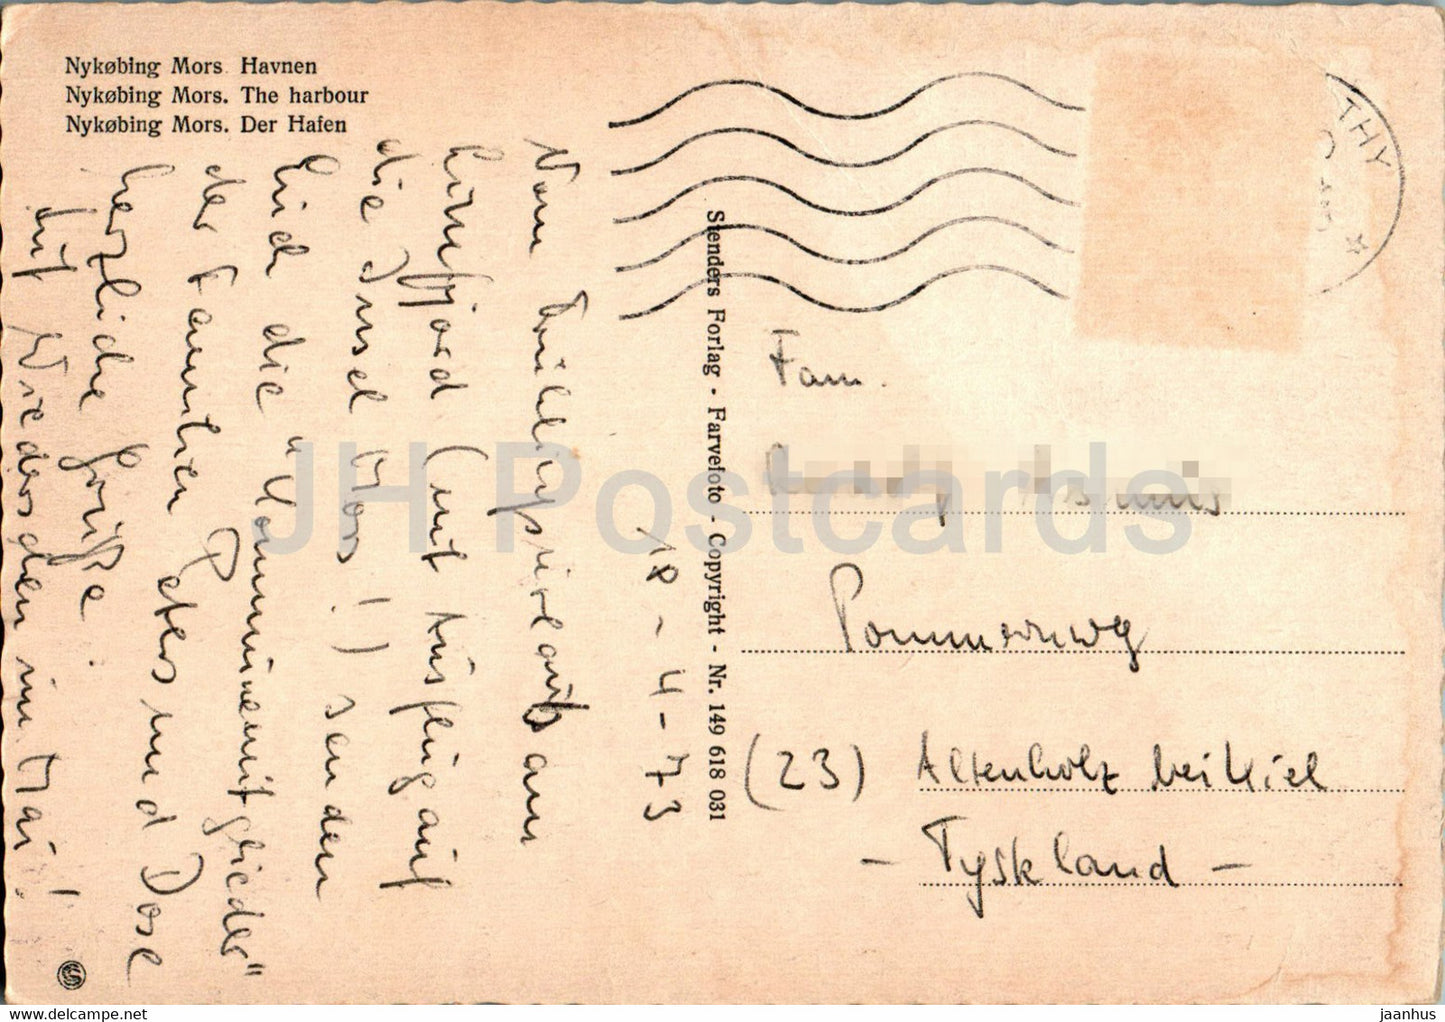 Nykøbing Mors. Havnen
Nykøbing Mors. The harbour
Nykøbing Mors. Der Hafen
18-4-73
Vom Frühlingsurlaub am
Limfjord (mit Ausflug auf
die Insel Mors!) senden
Euch die "Kommunemitglieder"
der Familien Peters und Dose
herzliche Grüße.
Auf Wiedersehen im Mai!
Stenders Forlag - Farvefoto - Copyright - Nr. 149 618 031
THY
Fam.
Pommernweg
(23) Altenholz bei Kiel
- Tyskland -
JH Postcards
www.delcampe.net
jaanhus